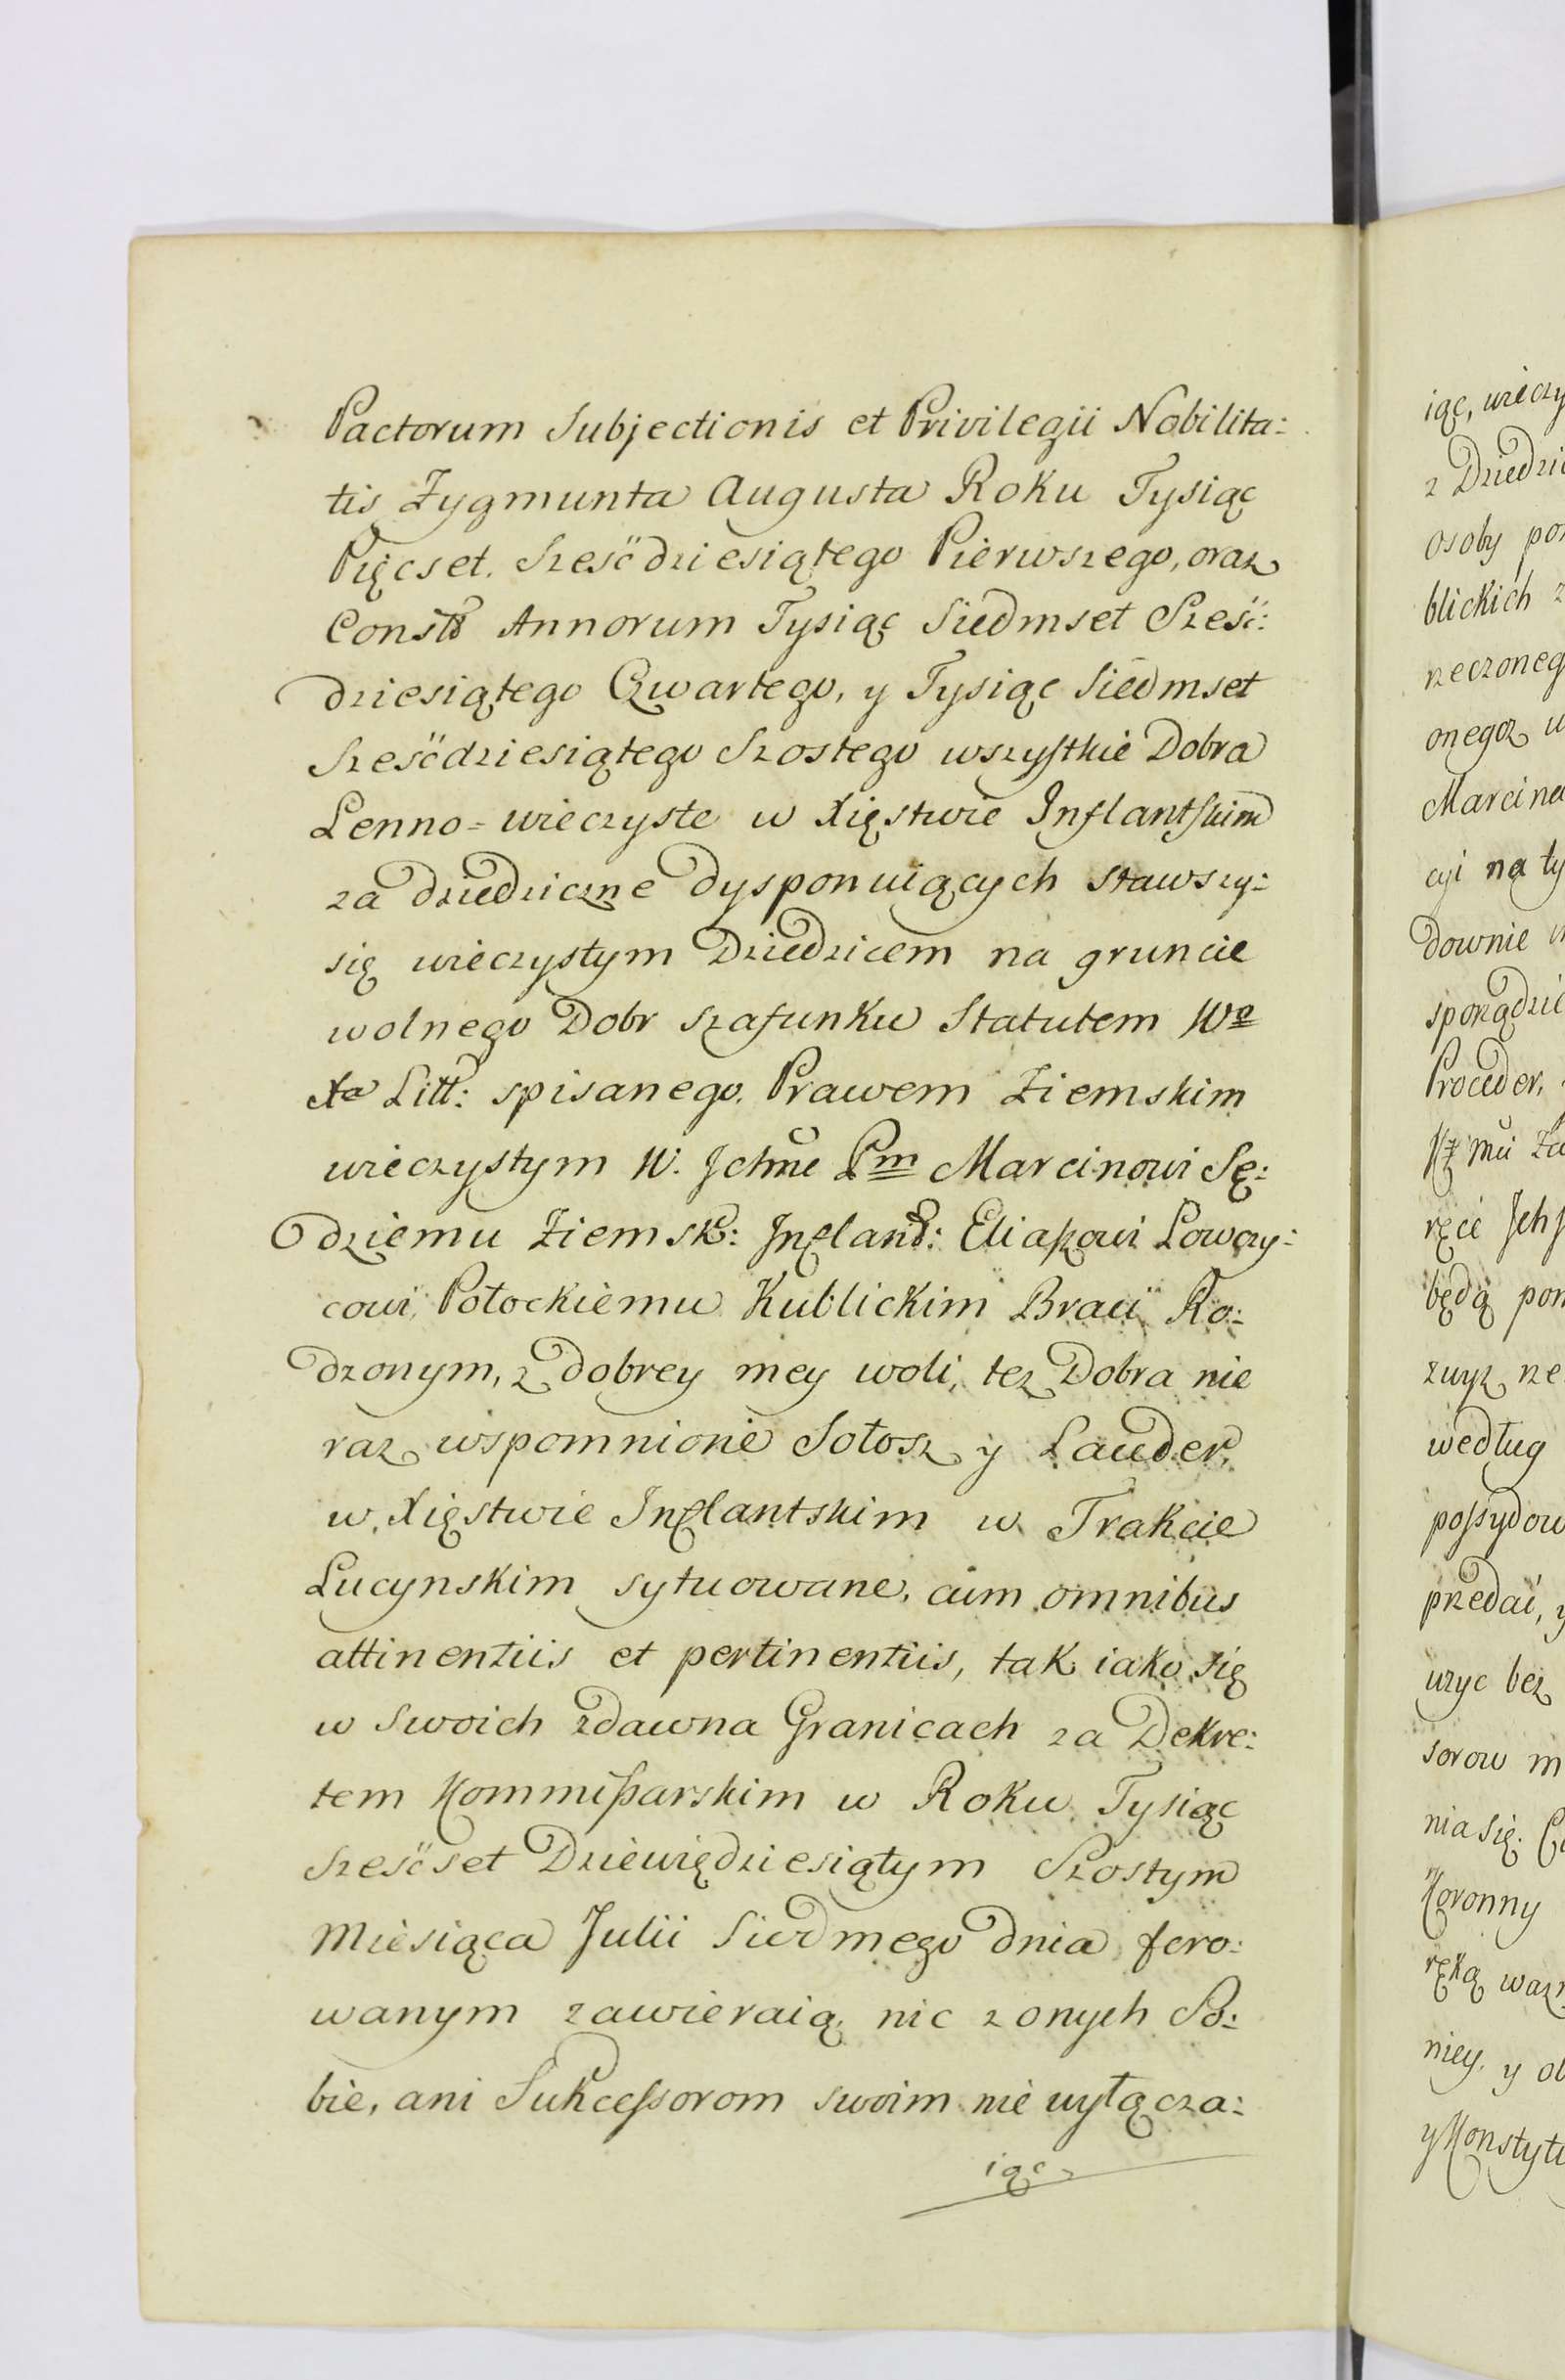 Pactorum Subjectionis et Privilegii Nobilita:
tis Zygmunta Augusta Roku Tysiąc
Pięcset. Sześćdziesiątego Pierwszego, oraz
Consttt Annorum Tysiąc Siedmset Sześć:
dziesiątego Czwartego, y Tysiąc Siedmset
Sześćdziesiątego Szostego wszystkie Dobra
Lenno=wieczyste w Xięstwie Inflantskim
za dziedziczne dysponuiących stawszy:
się wieczystym Dziedzicem na gruncie
wolnego Dobr szafunku Statutem Wo
Xa Litt: spisanego. Prawem Ziemskim
wieczystym W. Jchmć Pm Marcinowi Sę:
dziemu Ziemsk: Infland: Eliaszowi Łowczy:
cowi Połockiemu Kublickim Braci Ro:
dzonym, z dobrey mey woli, tez Dobra nie
raz wspomnione Sołosz y Lauder,
w Xięstwie Inflantskim w Trakcie
Lucynskim sytuowane, cum omnibus
attinentiis et pertinentiis, tak iako się
w Swoich zdawna Granicach za Dekre:
tem Kommissarskim w Roku Tysiąc
Sześćset Dziewiędziesiątym Szostym
Miesiąca Julii Siedmego dnia fero:
wanym zawieraią, nic z onych So:
bie, ani Sukcessorom swoim nie wyłącza:
iąc
iąc, wieczy
z Dziedzi
osoby po
blickich z
rzeczoneg
onegoz w
Marcina
cyi na ty
downie
sporządzi
Proceder,
ręce Jch
będą pon
zwyz rze
według
possydow
przedać, y
uzyc bez
sorow m
nia się.
Koronny
ręką wazn
niey, y ob
y Konstytu